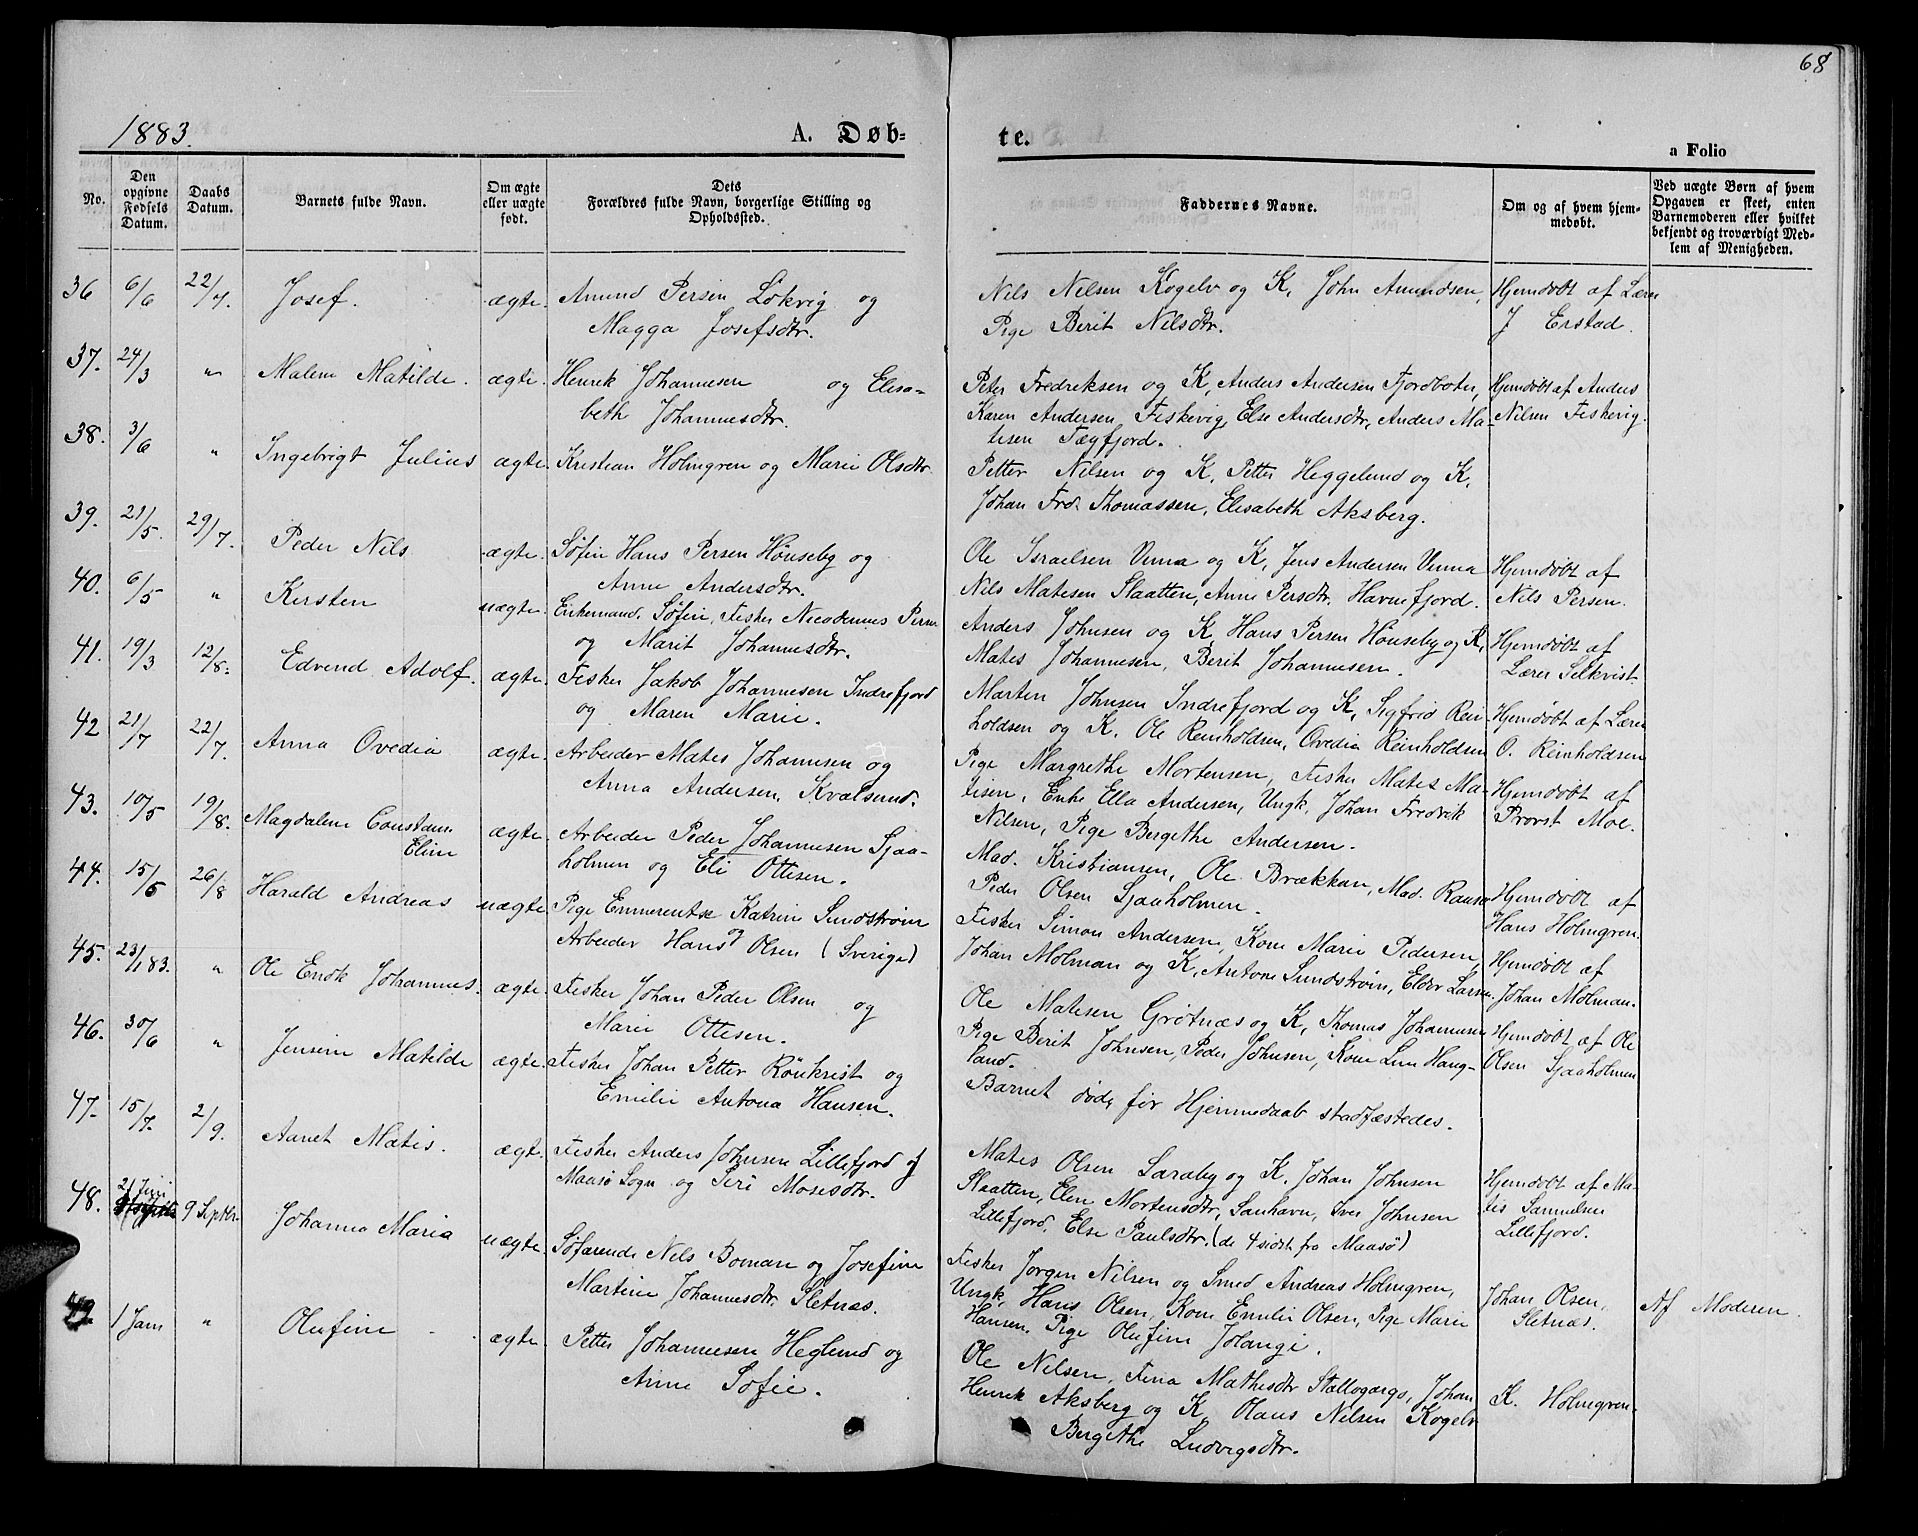 68
1883.
A. Døb=
te.
a Folio
No.
Den
opgivne
Fødsels
Datum.
Daabs
Datum.
Barnets fulde Navn.
Om ægte
eller uægte
født.
Dets
Forældres fulde Navn, borgerlige Stilling og
Opholdssted.
Faddernes Navne.
Om og af hvem hjem-
medøbt.
Ved uægte Børn af hvem
Opgaven er skeet, enten
Barnemoderen eller hvilket
bekjendt og troværdigt Med-
lem af Menigheden.
36 6/6 22/7. Josef. ægte. Amund Persen Lokvig og
Magga Josefsdtr.
Nils Nilsen Kogelv og K, John Amundsen,
Pige Berit Nilsdtr.
Hjemdøbt af Lærer
J Erstad.
37. 24/3 " Malene Matilde. ægte. Henrik Johannesen og Elisa-
beth Johannesdtr.
Peter Fredriksen og K, Anders Andersen Fjordboten,
Karen Andersen, Fiskevig, Else Andersdtr, Anders Ma-
tisen Fægfjord.
Hjemdøbt af Anders
Nilsen Fiskevig.
38. 3/6 " Ingebrigt Julius ægte. Kristian Holmgren og Marie Olsdtr.
Petter Nilsen og K, Petter Heggelund og K,
Johan Frd. Thomassen, Elisabeth Aksberg.
39. 21/5. 29/7. Peder Nils ægte. Søfin Hans Persen Hønseby og
Anne Andersdtr.
Ole Israelsen Vinna og K, Jens Andersen Vinna
Nils Matesen Slaatten, Anne Persdtr. Havnefjord.
Hjemdøbt af
Nils Persen.
40. 6/5 " Kirsten uægte. Enkemand, Søfin, Fisker Nicodemus Persen
og Marit Johannesdtr.
Anders Johnsen og K, Hans Persen Hønseby og K,
Mates Johannesen, Berit Johannesen.
Hjemdøbt af
Lærer Selkvist.
41. 19/3 12/8. Edvend Adolf. ægte. Fisker Jakob Johannesen Indrefjord
og Maren Marie.
Marten Johnsen Indrefjord og K, Sigfrid Rein-
holdsen og K. Ole Reinholdsen, Ovedia Reinholdsen
Hjemdøbt af Lærer
O. Reinholdsen
42 21/7 22/7. Anna Ovedia ægte. Arbeider Mates Johannesen og
Anna Andersen, Kvalsund.
Pige Margrethe Mortensen, Fisker Mates Ma-
tisen, Enke Ella Andersen, Ungk, Johan Fredrik
Nilsen, Pige Bergithe Andersen.
Hjemdøbt af
Provst Moe.
43. 10/5 19/8. Magdalene Constanse
Eline ægte. Arbeider Peder Johannesen Sjaa-
holmen og Eli Ottesen.
Mad. Kristiansen, Ole Brækkan, Mad. Rans
Peder Olsen Sjaaholmen.
Hjemdøbt af
Hans Holmgren.
44. 15/5 26/8 Harald Andreas uægte Pige Emmerentse Katrine Sundstrøm
og
Arbeider Hans Olsen (Sverige)
Fisker Simon Andersen, Kone Marie Pedersen,
Johan Molman og K, Antone Sundstrøm, Eldor Larsen.
Hjemdøbt af
Johan Molman.
45. 23/1 83. " Ole Endk Johannes. ægte. Fisker Johan Peder Olsen og
Marie Ottesen.
Ole Matesen Grøtnæs og K, Thomas Johannesen
Pige Berit Johnsen, Peder Johnsen, Kone Lina Haug-
land.
Hjemdøbt af Ole
Olsen Sjaaholmen
46. 30/6 " Jensine Matilde ægte. Fisker Johan Petter Rønkvist og
Emilie Antona Hansen.
Barnet døde før Hjemmedaab stadfæstedes.
47. 15/7. 2/9. Aanet Matis. ægte. Fisker Anders Johnsen Lillefjord af
Maasø Sogn og Siri Mosesdtr.
Mates Olsen Saraby og K, Johan Johnsen
Slaatten, Elen Mortensdtr, Sanhavn, Iver Johnsen
Lillefjord, Else Paulsdtr. (de 4 sidst fra Maasø)
Hjemdøbt af Ma-
tis Samuelsen
Lillefjord.
48. 21 Juni 9 Septbr. Johanna Maria uægte. Søfarende Nils Boman og Josefine
Martine Johannesdtr. Sletnæs.
Fisker Jørgen Nilsen og Smed Andreas Holmgren,
Ungk, Hans Olsen, Kone Emilie Olsen, Pige Marie
Hansen. Pige Olufine Jolangi.
Johan Olsen,
Sletnæs.
Af Moderen.
49. 1 Jani " Olufine ægte. Petter Johannesen Heglund og
Anne Sofie.
Ole Nilsen, Fina Mathisdtr Stallogargo, Johan
Henrik Aksberg og K, Olaus Nilsen Kogelv
Bergithe Ludvigsdtr.
K. Holmgren.